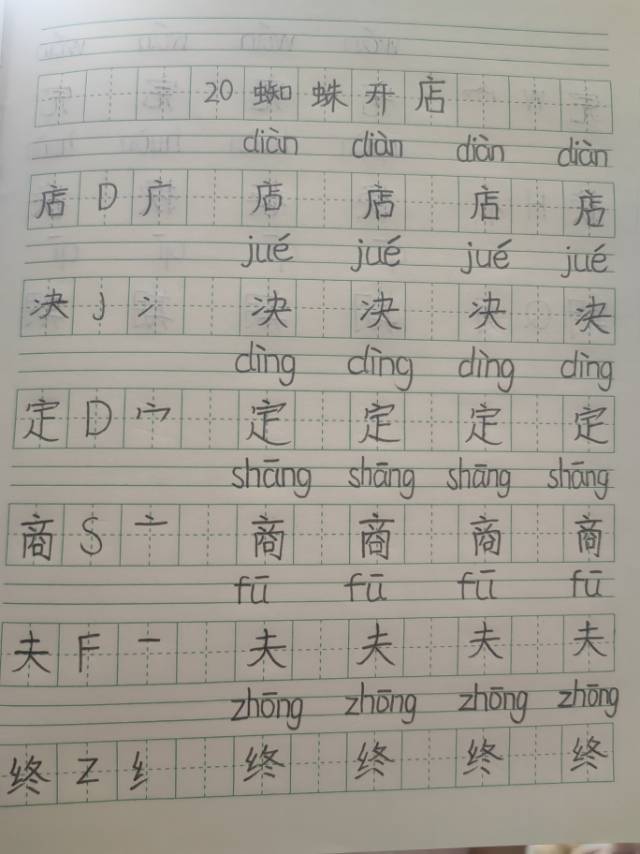 20 蜘蛛开店
diàn diàn diàn diàn
店 D 广 店 店 店 店
jué jué jué jué
决 J 冫 决 决 决 决
dìng dìng dìng dìng
定 D 宀 定 定 定 定
shāng shāng shāng shāng
商 S 亠 商 商 商 商
fū fū fū fū
夫 F 一 夫 夫 夫 夫
zhōng zhōng zhōng zhōng
终 Z 纟 终 终 终 终